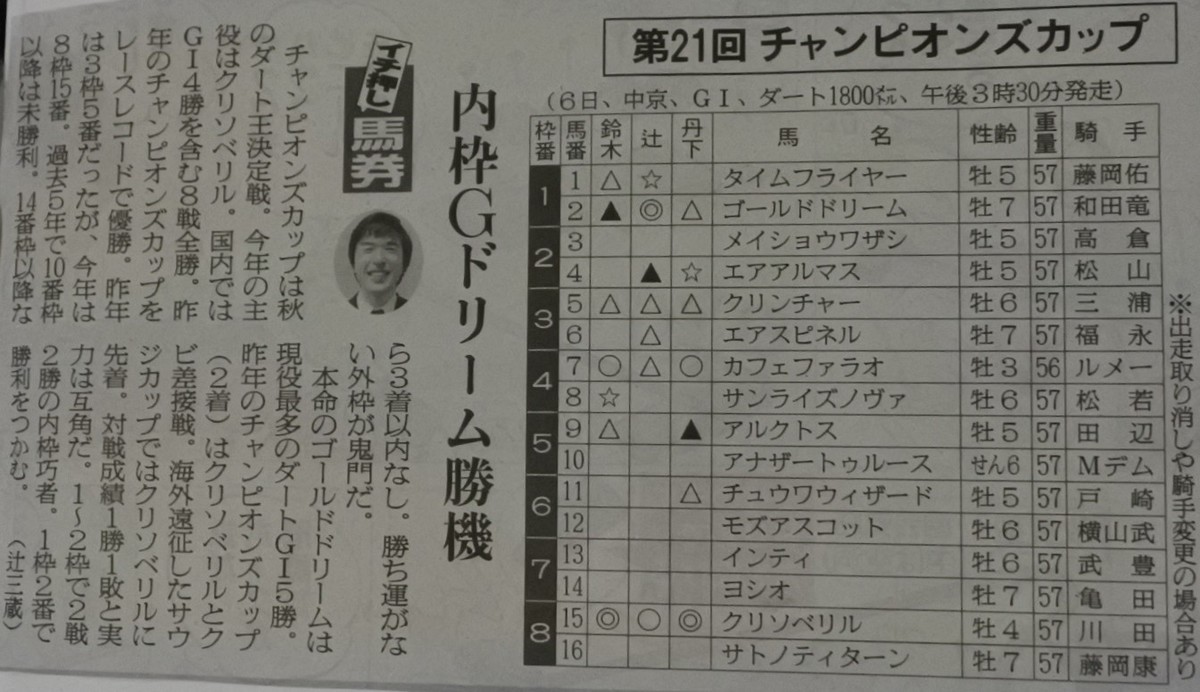 第21回 チャンピオンズカップ
(6日、中京、GⅠ、ダート1800㍍、午後3時30分発走)
枠番 馬番 鈴木 辻 丹下 馬名 性齢 重量 騎手
1 1 △ ☆ タイムフライヤー 牡5 57 藤岡佑
2 ▲ ◎ △ ゴールドドリーム 牡7 57 和田竜
2 3 メイショウワザシ 牡5 57 高倉
4 ▲ ☆ エアアルマス 牡5 57 松山
3 5 △ △ △ クリンチャー 牡6 57 三浦
6 △ エアスピネル 牡7 57 福永
4 7 ○ △ ○ カフェファラオ 牡3 56 ルメー
8 ☆ サンライズノヴァ 牡6 57 松若
5 9 △ ▲ アルクトス 牡5 57 田辺
10 アナザートゥルース せん6 57 Mデム
6 11 △ チュウワウィザード 牡5 57 戸崎
12 モズアスコット 牡6 57 横山武
7 13 インティ 牡6 57 武豊
14 ヨシオ 牡7 57 亀田
8 15 ◎ ○ ◎ クリソベリル 牡4 57 川田
16 サトノティターン 牡7 57 藤岡康
※出走取り消しや騎手変更の場合あり
内枠Gドリーム勝機
イチ押し
馬券
チャンピオンズカップは秋
のダート王決定戦。今年の主
役はクリソベリル。国内では
GⅠ4勝を含む8戦全勝。昨
年のチャンピオンズカップを
レースレコードで優勝。昨年
は3枠5番だったが、今年は
8枠15番。過去5年で10番枠
以降は未勝利。14番枠以降な
ら3着以内なし。勝ち運がな
い外枠が鬼門だ。
本命のゴールドドリームは
現役最多のダートGⅠ5勝。
昨年のチャンピオンズカップ
(2着)はクリソベリルとク
ビ差接戦。海外遠征したサウ
ジカップではクリソベリルに
先着。対戦成績1勝1敗と実
力は互角だ。1～2枠で2戦
2勝の内枠巧者。1枠2番で
勝利をつかむ。 (辻三蔵)